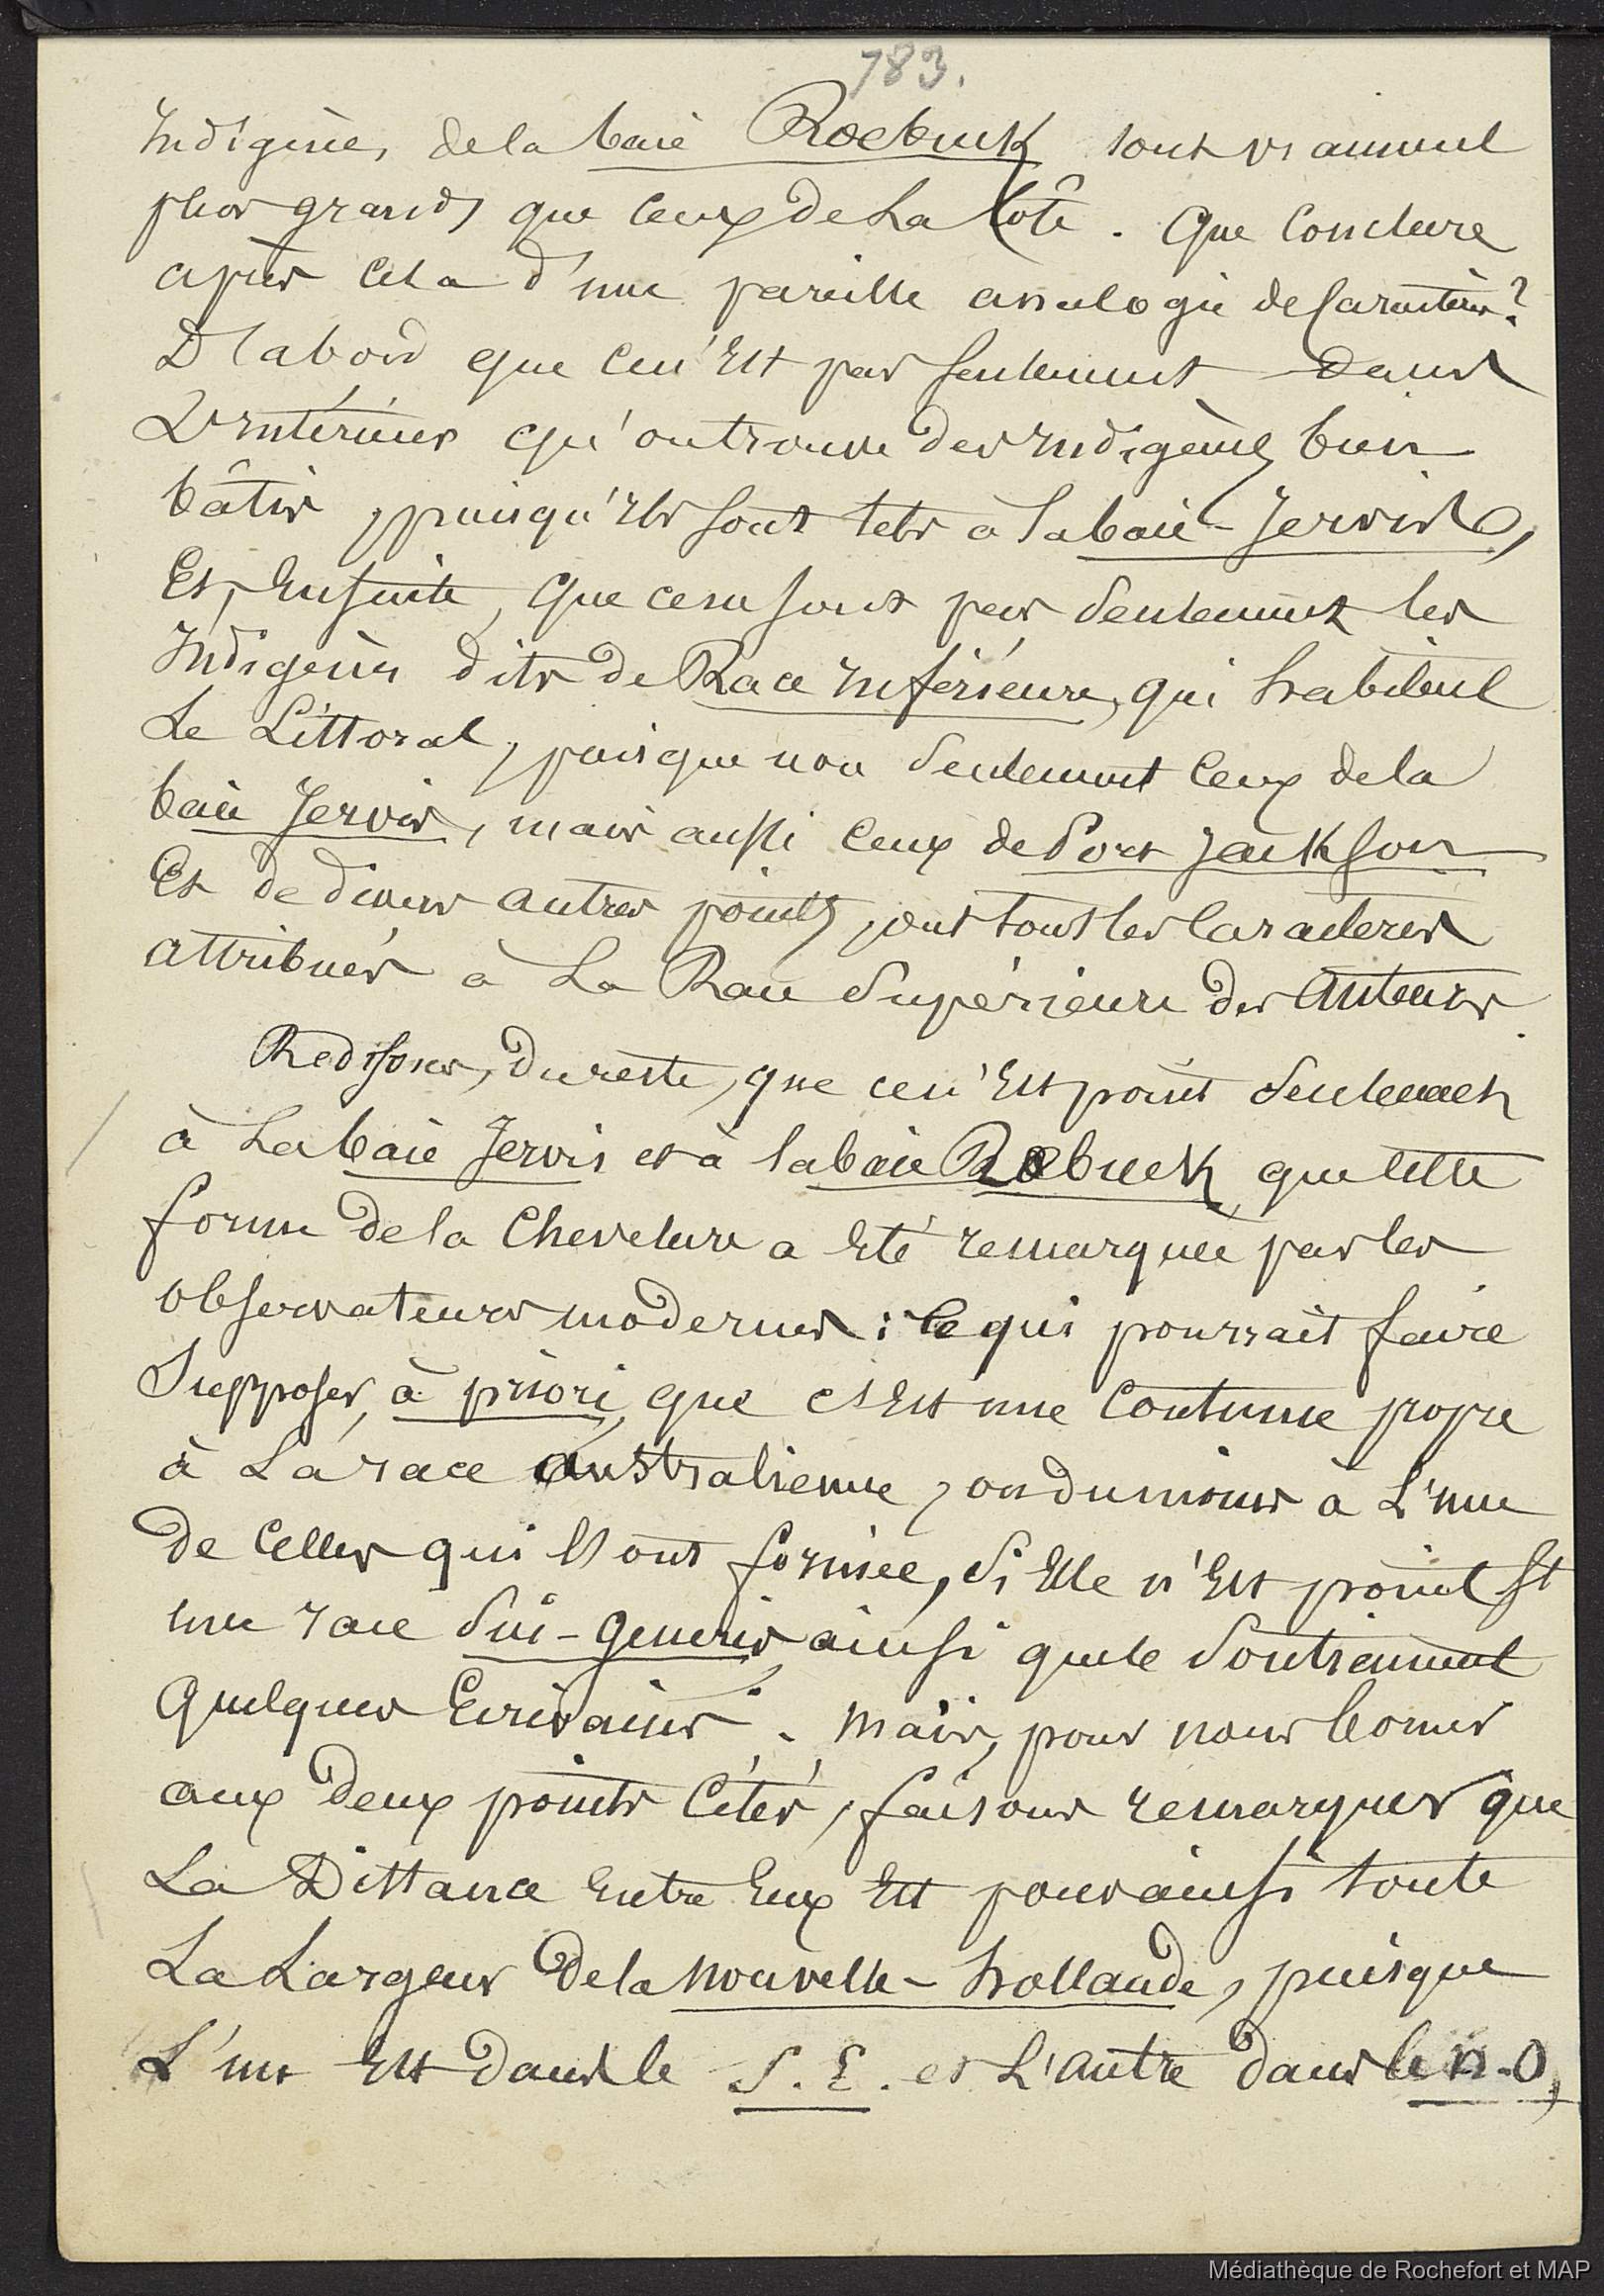 783.
Indigènes de la baie Roebuck sont vraiment
plus grands que ceux de La Côte. Que Conclure
après cela d'une pareille analogie de Caractères?
D'abord que ce n'Est pas seulement dans
L'intérieur qu'on trouve des indigènes bien
bâtis, puisqu'Ils sont tels à la baie-Jervis,
Et, Ensuite, Que ce ne sont pas seulement les
Indigènes dits de Race inférieure, qui habitent
Le Littoral, puisque non seulement Ceux de la
baie Jervis, mais aussi Ceux de Port Jackson
Et de divers autres points, ont tous les Caractères
attribués à La Race Supérieure des auteurs.
Redisons, du reste, que ce n'Est point seulement
à La baie Jervis et à la baie Roebuck que cette
forme de la Chevelure a Eté remarquée par les
observateurs modernes: Ce qui pourrait faire
Supposer, à priori, que c'Est une Coutume propre
à La race australienne, ou du moins à L'une
de Celles qui l'ont formée, si Elle n'Est point
une race Sui-generis, ainsi que le Soutiennent
Quelques Ecrivains. Mais, pour nous borner
aux deux points Cités, faisons remarquer que
La Distance Entre Eux Est pour ainsi toute
La Largeur de la nouvelle-hollande, puisque
L'un Est dans le S.E. et L'autre dans le n-O,
Médiathèque de Rochefort et MAP